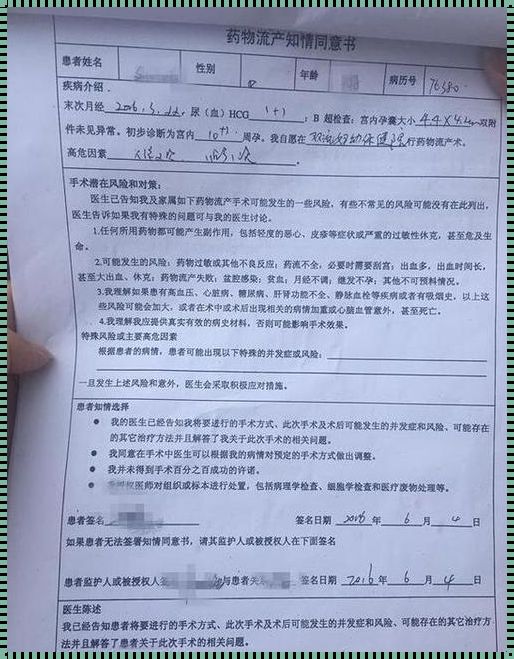 药物流产知情同意书
患者姓名 性别 年龄 病历号 76380
疾病介绍
末次月经 2016.3.22，尿（血）HCG (+)；B 超检查：宫内孕囊大小 4.4×4.2cm双附
件未见异常。初步诊断为宫内 10+ 周孕。我自愿在 双流妇幼保健院行药物流产术。
高危因素 。
手术潜在风险和对策：
医生已告知我及家属如下药物流产手术可能发生的一些风险，有些不常见的风险可能没有在此列出，
医生告诉如果我有特殊的问题可与我的医生讨论。
1.任何所用药物都可能产生副作用，包括轻度的恶心、皮疹等症状或严重的过敏性休克，甚至危及生
命。
2.可能发生的风险：药物过敏或其他不良反应；药流不全，必要时需要刮宫；出血多，出血时间长，
甚至大出血、休克；药物流产失败；盆腔感染；贫血；月经不调；继发不孕；其他不可预料情况。
3.我理解如果患有高血压、心脏病、糖尿病、肝肾功能不全、静脉血栓等疾病或者有吸烟史，以上这
些风险可能会加大，或者在术中或术后出现相关的病情加重或心脑血管意外，甚至死亡。
4.我理解我应提供真实有效的病史材料，否则可能影响手术效果。
特殊风险或主要高危因素
根据患者的病情，患者可能出现以下特殊的并发症或风险：
一旦发生上述风险和意外，医生会采取积极应对措施。
患者知情选择
● 我的医生已经告知我将要进行的手术方式、此次手术及术后可能发生的并发症和风险、可能存在
的其它治疗方法并且解答了我关于此次手术的相关问题。
● 我同意在手术中医生可以根据我的病情对预定的手术方式做出调整。
● 我并未得到手术百分之百成功的许诺。
● 医师对组织或标本进行处置，包括病理学检查、细胞学检查和医疗废物处理等。
患者签名 签名日期 2016 年 6 月 4 日
如果患者无法签署知情同意书，请其监护人或被授权人在下面签名
患者监护人或被授权人签 与患者关 签名日期 2016 年 6 月 4 日
医生陈述
我已经告知患者将要进行的手术方式、此次手术及术后可能发生的并发症和风险、可能存在的其它治疗方
法并且解答了患者关于此次手术的相关问题。